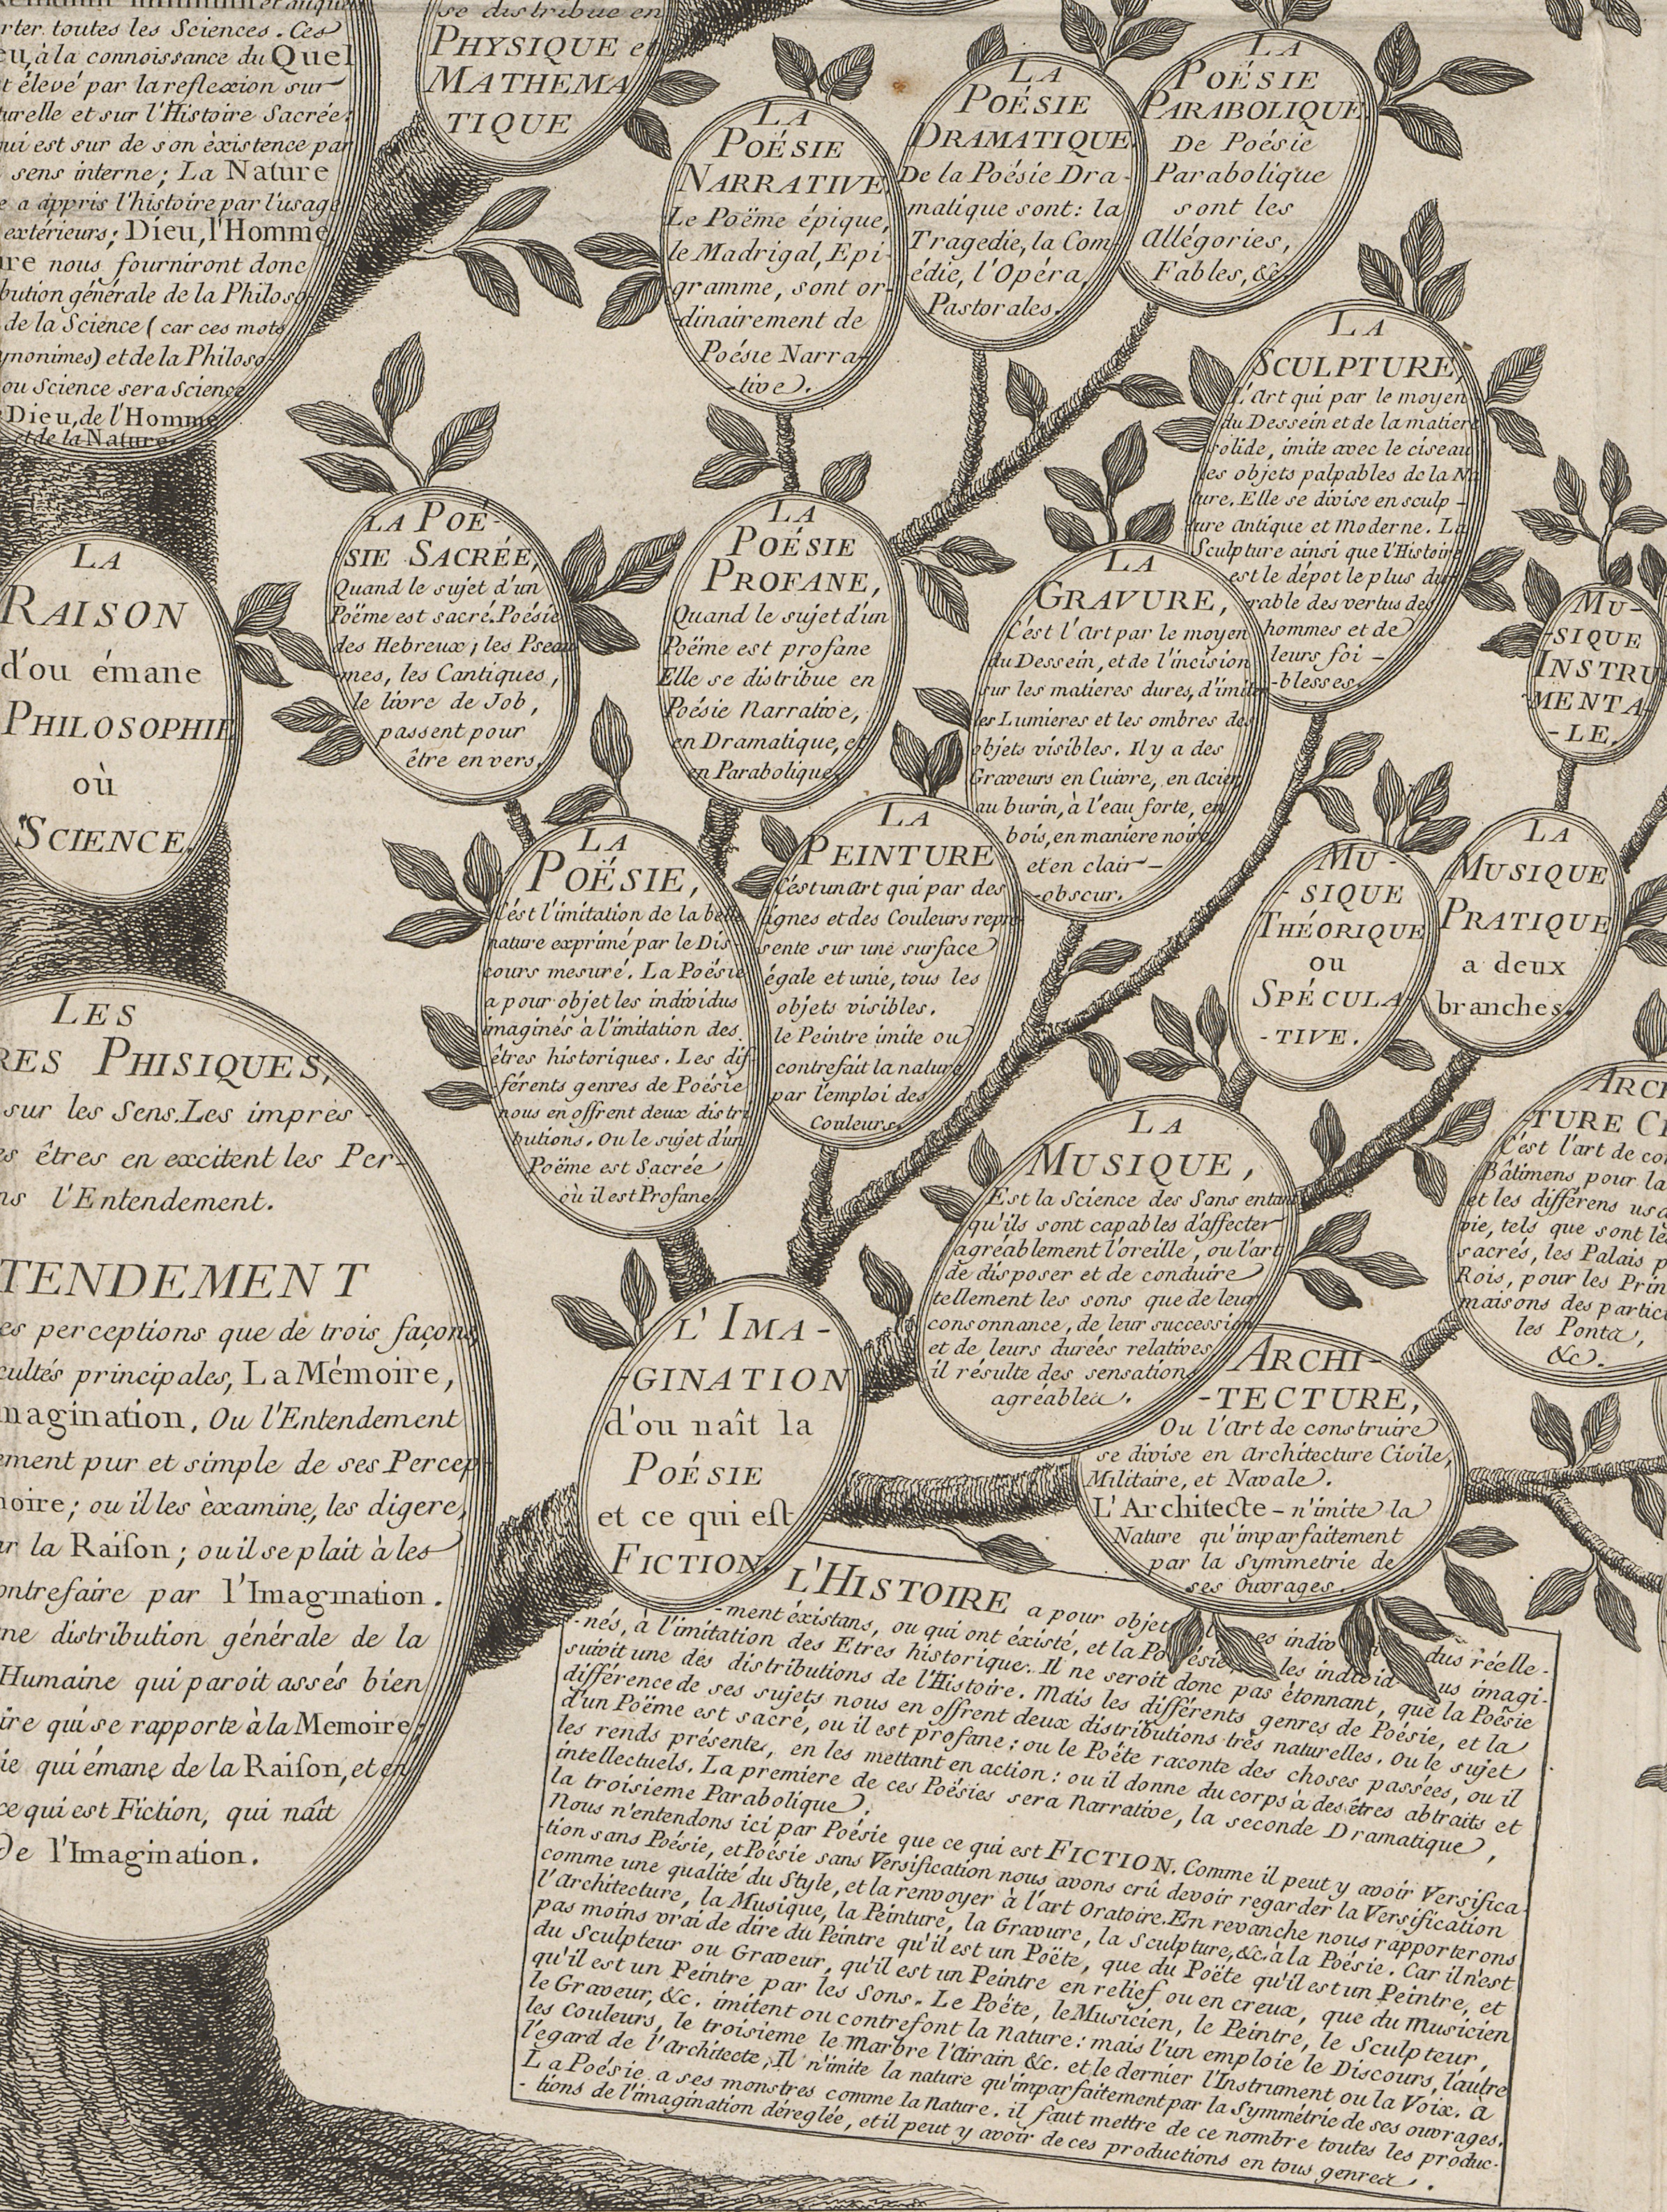 rter toutes les Sciences. Ces
eu, à la connoissance du Quel
t élevé par la reflexion sur
turelle et sur l'Histoire Sacrée:
qui est sur de son èxistence par
sens interne; La Nature
e a appris l'histoire par l'usage
extérieurs; Dieu, l'Homme
ure nous fourniront donc
bution générale de la Philoso
de la Science (car ces mots
ynonimes) et de la Philoso-
ou Science sera Science
Dieu, de l'Homme
et de la Nature.
se distribue en
PHYSIQUE et
MATHEMA
TIQUE
LA
POÉSIE
NARRATIVE
Le Poëme épique,
le Madrigal, Epi-
gramme, sont or-
dinairement de
Poésie Narra-
-tive.
LA
POÉSIE
DRAMATIQUE
De la Poésie Dra-
matique sont: la
Tragedie, la Com
édie, l'Opéra,
Pastorales.
LA
POÉSIE
PARABOLIQUE
De Poésie
Parabolique
sont les
Allégories,
Fables, &c
LA
SCULPTURE,
L'Art qui par le moyen
du Dessein et de la matiere
solide, imite avec le ciseau
les objets palpables de la Na
ture. Elle se divise en sculp-
ture Antique et Moderne. La
Sculpture ainsi que l'Histoire
est le dépot le plus du-
rable des vertus des
hommes et de
leurs foi-
-blesses.
LA POE-
SIE SACRÉE,
Quand le sujet d'un
Poëme est sacré. Poésie
des Hebreux; les Pseau
mes, les Cantiques,
le livre de Job,
passent pour
être en vers.
LA
POÉSIE
PROFANE,
Quand le sujet d'un
Poëme est profane
Elle se distribue en
Poésie Narrative,
en Dramatique, et
en Parabolique.
LA
GRAVURE,
C'est l'Art par le moyen
du Dessein, et de l'incision
sur les matieres dures, d'imiter
les Lumieres et les ombres des
objets visibles. Il y a des
Graveurs en Cuivre, en Acier,
au burin, à l'eau forte, en
bois, en maniere noire
et en clair-
obscur.
MU-
-SIQUE
INSTRU
MENTA
-LE.
LA
RAISON
d'ou émane
PHILOSOPHIE
où
SCIENCE.
LA
POËSIE,
C'est l'imitation de la belle
nature exprimé par le Dis-
cours mesuré. La Poésie
a pour objet les individus
imaginés à l'imitation des
êtres historiques. Les dif-
férents genres de Poésie
nous en offrent deux distri
butions. Ou le sujet d'un
Poëme est Sacrée
où il est Profane.
LA
PEINTURE
C'est un art qui par des
lignes et des Couleurs repre
sente sur une surface
égale et unie, tous les
objets visibles.
le Peintre imite ou
contrefait la nature
par l'emploi des
Couleurs.
MU-
-SIQUE
THÉORIQUE
ou
SPÉCULA
-TIVE.
LA
MUSIQUE
PRATIQUE
a deux
branches.
LES
RES PHISIQUES,
sur les Sens. Les impres-
es êtres en excitent les Per-
ns l'Entendement.
TENDEMENT
es perceptions que de trois façons
cultés principales, La Mémoire,
magination, Ou l'Entendement
ement pur et simple de ses Percep-
moire; ou il les èxamine, les digere,
ar la Raison; ou il se plait à les
ontrefaire par l'Imagination.
ne distribution générale de la
Humaine qui paroit assés bien
ire qui se rapporte à la Memoire;
ie qui émane de la Raison, et en
ce qui est Fiction, qui naît
De l'Imagination.
LA
MUSIQUE,
Est la Science des Sons entant
qu'ils sont capables d'affecter
agréablement l'oreille, ou l'art
de disposer et de conduire
tellement les sons que de leur
consonnance, de leur succession
et de leurs durées relatives
il résulte des sensations
agréables.
ARCHI
TURE CI
C'est l'art de con
Bâtimens pour la
et les différens usa
vie, tels que sont le
sacrés, les Palais p
Rois, pour les Prin
maisons des partic
les Ponts,
&c.
L'IMA-
-GINATION
d'ou naît la
POÉSIE
et ce qui est
FICTION.
ARCHI-
-TECTURE,
Ou l'Art de construire
se divise en Architecture Civile,
Militaire, et Navale.
L'Architecte - n'imite la
Nature qu'imparfaitement
par la Symmetrie de
ses Ouvrages.
L'HISTOIRE a pour objet les individus réelle-
-ment éxistans, ou qui ont éxisté, et la Poésie les individus imagi-
-nés, à l'imitation des Etres historique. Il ne seroit donc pas étonnant, que la Poësie
suivit une des distributions de l'Histoire. Mais les différents genres de Poésie, et la
différence de ses sujets nous en offrent deux distributions trés naturelles. Ou le sujet
d'un Poëme est sacré, ou il est profane: ou le Poéte raconte des choses passées, ou il
les rends présentes, en les mettant en action: ou il donne du corps à des êtres abtraits et
intellectuels. La premiere de ces Poésies sera Narrative, la seconde Dramatique,
la troisieme Parabolique.
Nous n'entendons ici par Poésie que ce qui est FICTION. Comme il peut y avoir Versifica-
-tion sans Poésie, et Poésie sans Versification nous avons crû devoir regarder la Versification
comme une qualité du Style, et la renvoyer à l'art Oratoire. En revanche nous rapporterons
l'Architecture, la Musique, la Peinture, la Gravure, la Sculpture, &c. à la Poésie. Car il n'est
pas moins vrai de dire du Peintre qu'il est un Poëte, que du Poëte qu'il est un Peintre, et
du Sculpteur ou Graveur, qu'il est un Peintre en relief ou en creux, que du Musicien
qu'il est un Peintre par les Sons. Le Poéte, le Musicien, le Peintre, le Sculpteur,
le Graveur, &c. imitent ou contrefont la Nature: mais l'un emploie le Discours, l'autre
les Couleurs, le troisieme le Marbre l'Airain &c. et le dernier l'Instrument ou la Voix. A
l'egard de l'Architecte, Il n'imite la nature qu'imparfaitement par la Symmétrie de ses ouvrages.
La Poésie a ses monstres comme la Nature. il faut mettre de ce nombre toutes les produc-
-tions de l'imagination déreglée, et il peut y avoir de ces productions en tous genres.